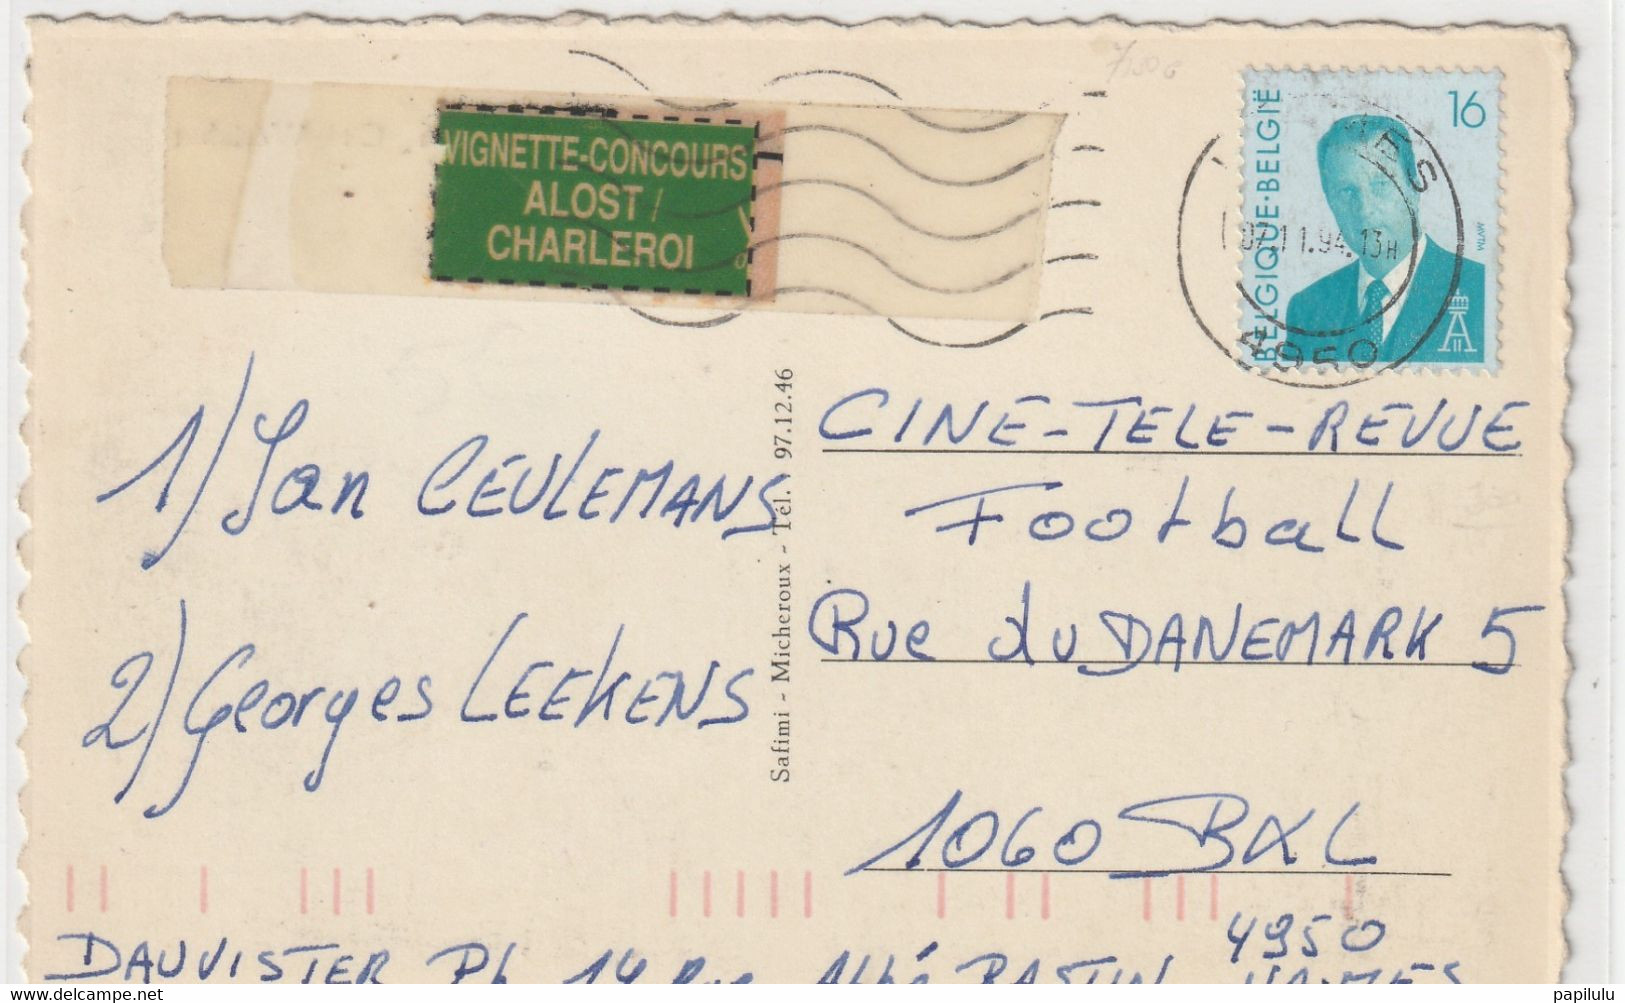 VIGNETTE-CONCOURS
ALOST /
CHARLEROI
16
BELGIQUE·BELGIË
MVTM
07.11.94.13H
4950
1) Jan CEULEMANS
2) Georges LEEKENS
Safimi - Micheroux - Tél. 97.12.46
CINE-TELE-REVUE
Football
Rue du DANEMARK 5
1060 BXL
4950
DAUVISTER Ph 14 Rue Abbé BASTIN
delcampe.net
papilulu